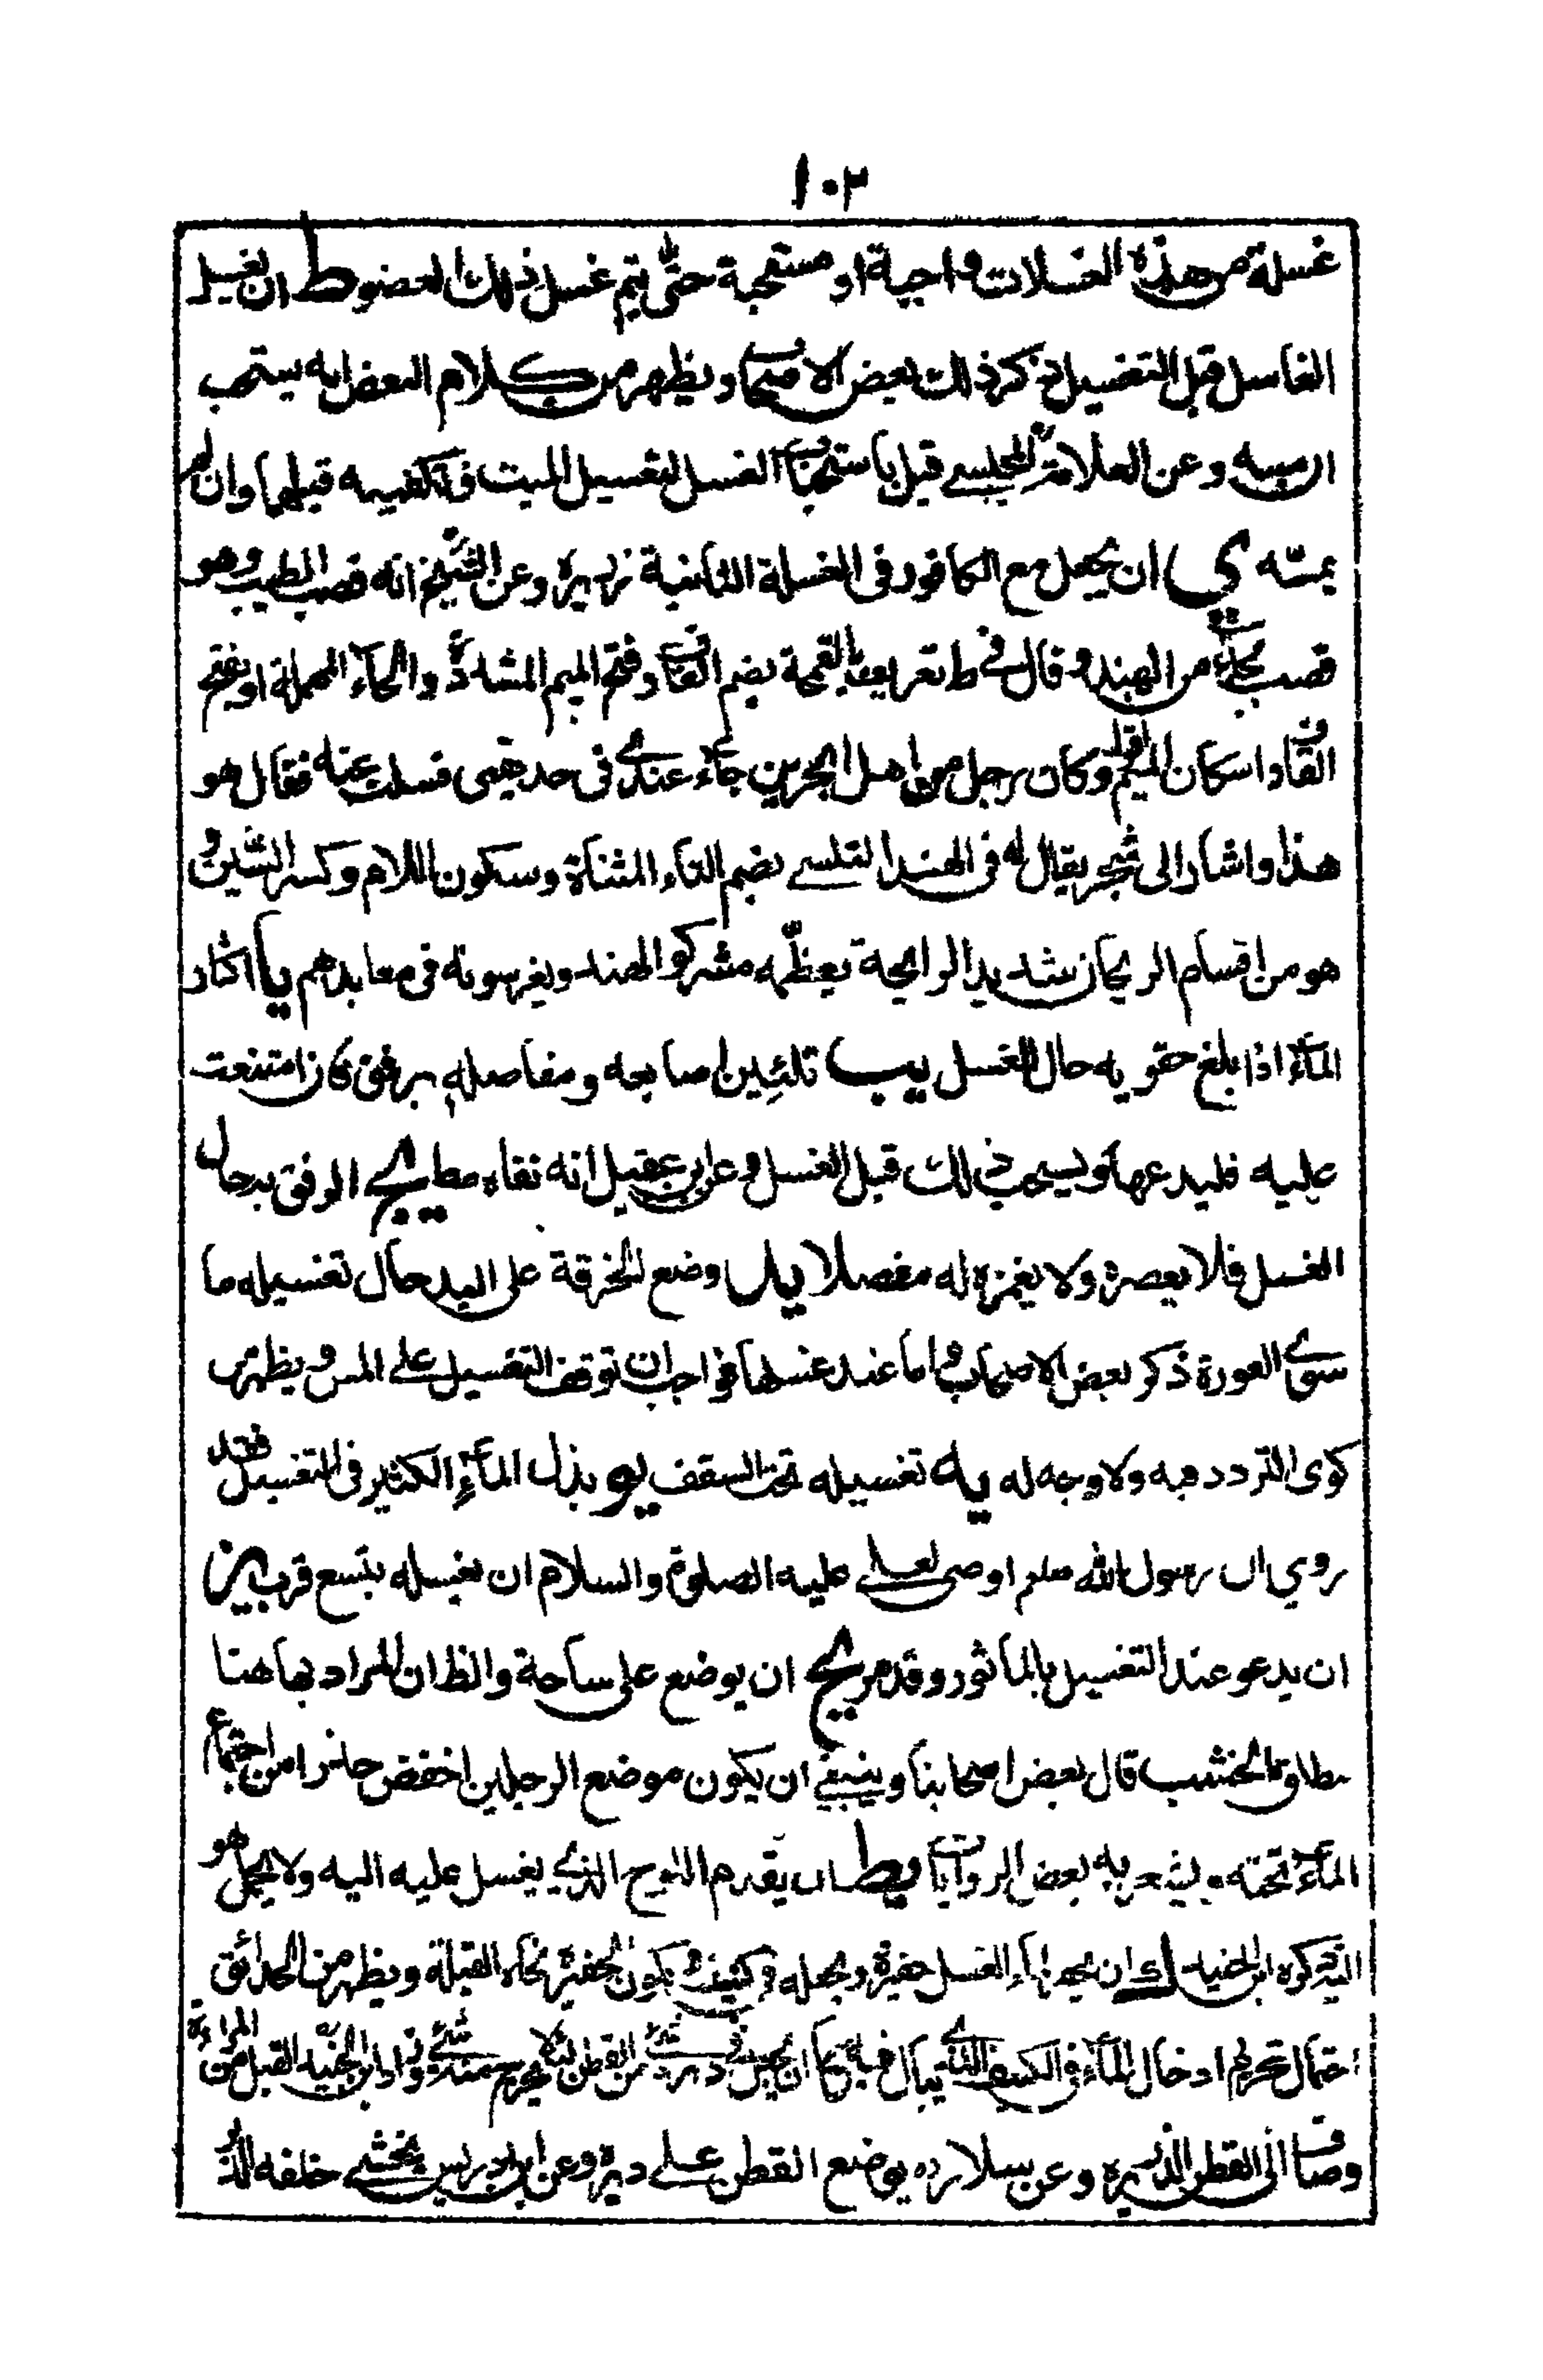 ١٠٢
غسلة من هذه الغسلات واجبة او مستحبة حتى يتم غسل ذلك العضو ط ان يغسل
الغاسل قبل التغسيل ذكر ذلك بعض الاصحاب ويظهر من كلام البعض انه يستحب
ان مسه وعن العلامة المجلسي قيل باستحباب الغسل لتغسيل الميت وتكفينه قبلهما وان لم
يمسّه ي ان يجعل مع الكافور في الغسلة الثانية ذريرة وعن الشيخ انه قصب الطيب وهو
قصب من الهند وقال في ط تعرف بالقمحة بضم القاف وفتح الميم المشددة والحاء المهملة او بفتح
القاف واسكان الميم وكان رجل من اهل البحرين جاء عندي في حديقتي فسئلت عنه فقال هو
هذا واشار الى شجر يقال له في الهند التلسي بضم التاء المثناة وسكون اللام وكسر السين و
هو من اقسام الريحان شديد الرايحة يعظّمه مشركو الهند ويغرسونه في معابدهم يا اكثار
الماء اذا بلغ حقويه حال الغسل يب تلئين اصابعه ومفاصله برفق فان امتنعت
عليه فليدعها ويستحب ذلك قبل الغسل وعن ابن عقيل انه نفاه مط يج الرفق به حال
الغسل فلا يعصره ولا يغمز له مفصلا يد وضع الخرقة على اليد حال تغسيله ما
سوى العورة ذكر بعض الاصحاب واما عند غسلها فواجب ان توقف التغسيل على المس ويظهر من
كوى التردد فيه ولا وجه له يه تغسيله تحت السقف يو بذل الماء الكثير في التغسيل فقد
روي ان رسول الله صلعم اوصى لعلي عليه الصلوة والسلام ان يغسله بتسع قرب يز
ان يدعو عند التغسيل بالماثور وقد مر يح ان يوضع على ساجة والظ ان المراد بها هنا
مطلق الخشب قال بعض اصحابنا وينبغي ان يكون موضع الرجلين اخفض حذرا من اجتماع
الماء تحته ويشعر به بعض الروايات يط ان يقدم اللوح الذي يغسل عليه اليه ولا يحمل هو
اليه ذكره ابن الجنيد ك ان يحفر لماء الغسل حفيرة ويجعله في كنيف وتكون الحفيرة تجاه القبلة ويظهر من الحدائق
احتمال تحريم ادخال الماء في الكنيف الذي يبال فيه كا ان يجعل في دبره شئ من القطن لئلا يخرج منه شئ وزاد ابن الجنيد القبل من المراءة
وصاف الى القطن الذريرة وعن سلار ره يوضع القطن على دبره وعن ابن ادريس يحشى خلفه